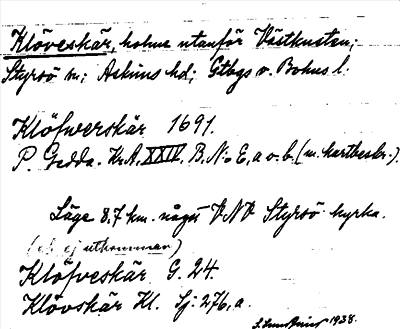 Klöveskär, holme utanför Västkusten;
Styrsö sn; Askims hd; Gtbgs o. Bohus l.
Klöfwerskär 1691.
P. Gedda. Kr.A. XXIV. B. No E, a o. b. (m. kartbeskr.).
Läge 8,7 km. något VNV Styrsö kyrka.
(ej utkommen)
Klöfveskär G. 24.
Klövskär Kl. Sj: 276, a.
1938.